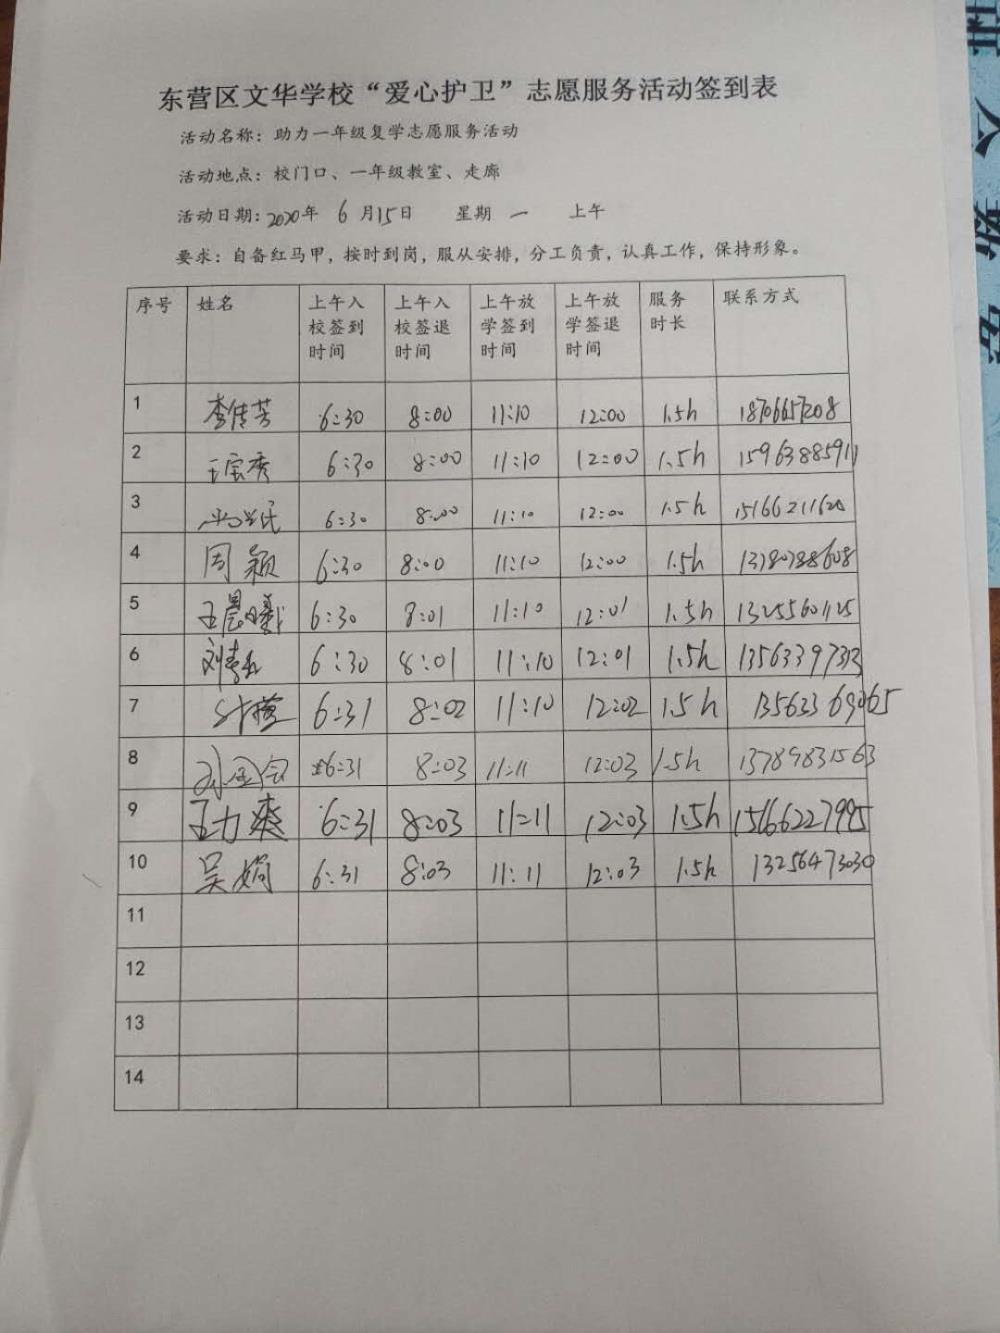 东营区文华学校“爱心护卫”志愿服务活动签到表
活动名称：助力一年级复学志愿服务活动
活动地点：校门口、一年级教室、走廊
活动日期：2020年 6月15日 星期一 上午
要求：自备红马甲，按时到岗，服从安排，分工负责，认真工作，保持形象。
序号 姓名 上午入校签到时间 上午入校签退时间 上午放学签到时间 上午放学签退时间 服务时长 联系方式
1 李传芳 6:30 8:00 11:10 12:00 1.5h 18706657208
2 王宗秀 6:30 8:00 11:10 12:00 1.5h 15963885911
3 6:30 8:00 11:10 12:00 1.5h
4 周颖 6:30 8:00 11:10 12:00 1.5h 13780788608
5 王晨曦 6:30 8:01 11:10 12:01 1.5h 13255601125
6 6:30 8:01 11:10 12:01 1.5h 13563397313
7 6:31 8:02 11:10 12:02 1.5h 13563369065
8 6:31 8:03 11:11 12:03 1.5h 13789831563
9 王力爽 6:31 8:03 11:11 12:03 1.5h 15166227995
10 吴娟 6:31 8:03 11:11 12:03 1.5h 13256473030
11
12
13
14